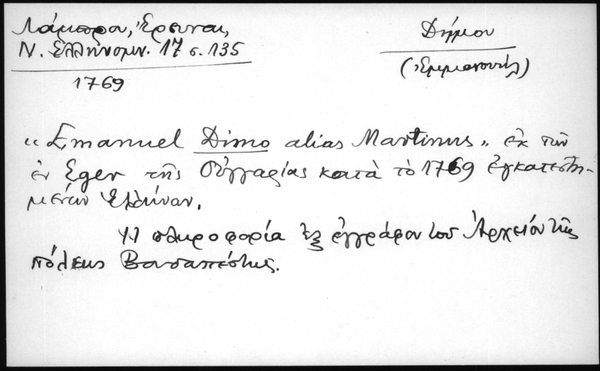 Λάμπρου, Ἔρευναι,
Ν. Ἑλληνομν. 17 σ. 135
1769
Δήμου
(Ἐμμανουήλ)
"Emanuel Dimo alias Martinus" ἐκ τῶν
ἐν Eger τῆς Οὑγγαρίας κατὰ τὸ 1769 ἐγκατεστη-
μένων Ἑλλήνων.
Ἡ πληροφορία ἐξ ἐγγράφου τοῦ Ἀρχείου τῆς
πόλεως Βουδαπέστης.